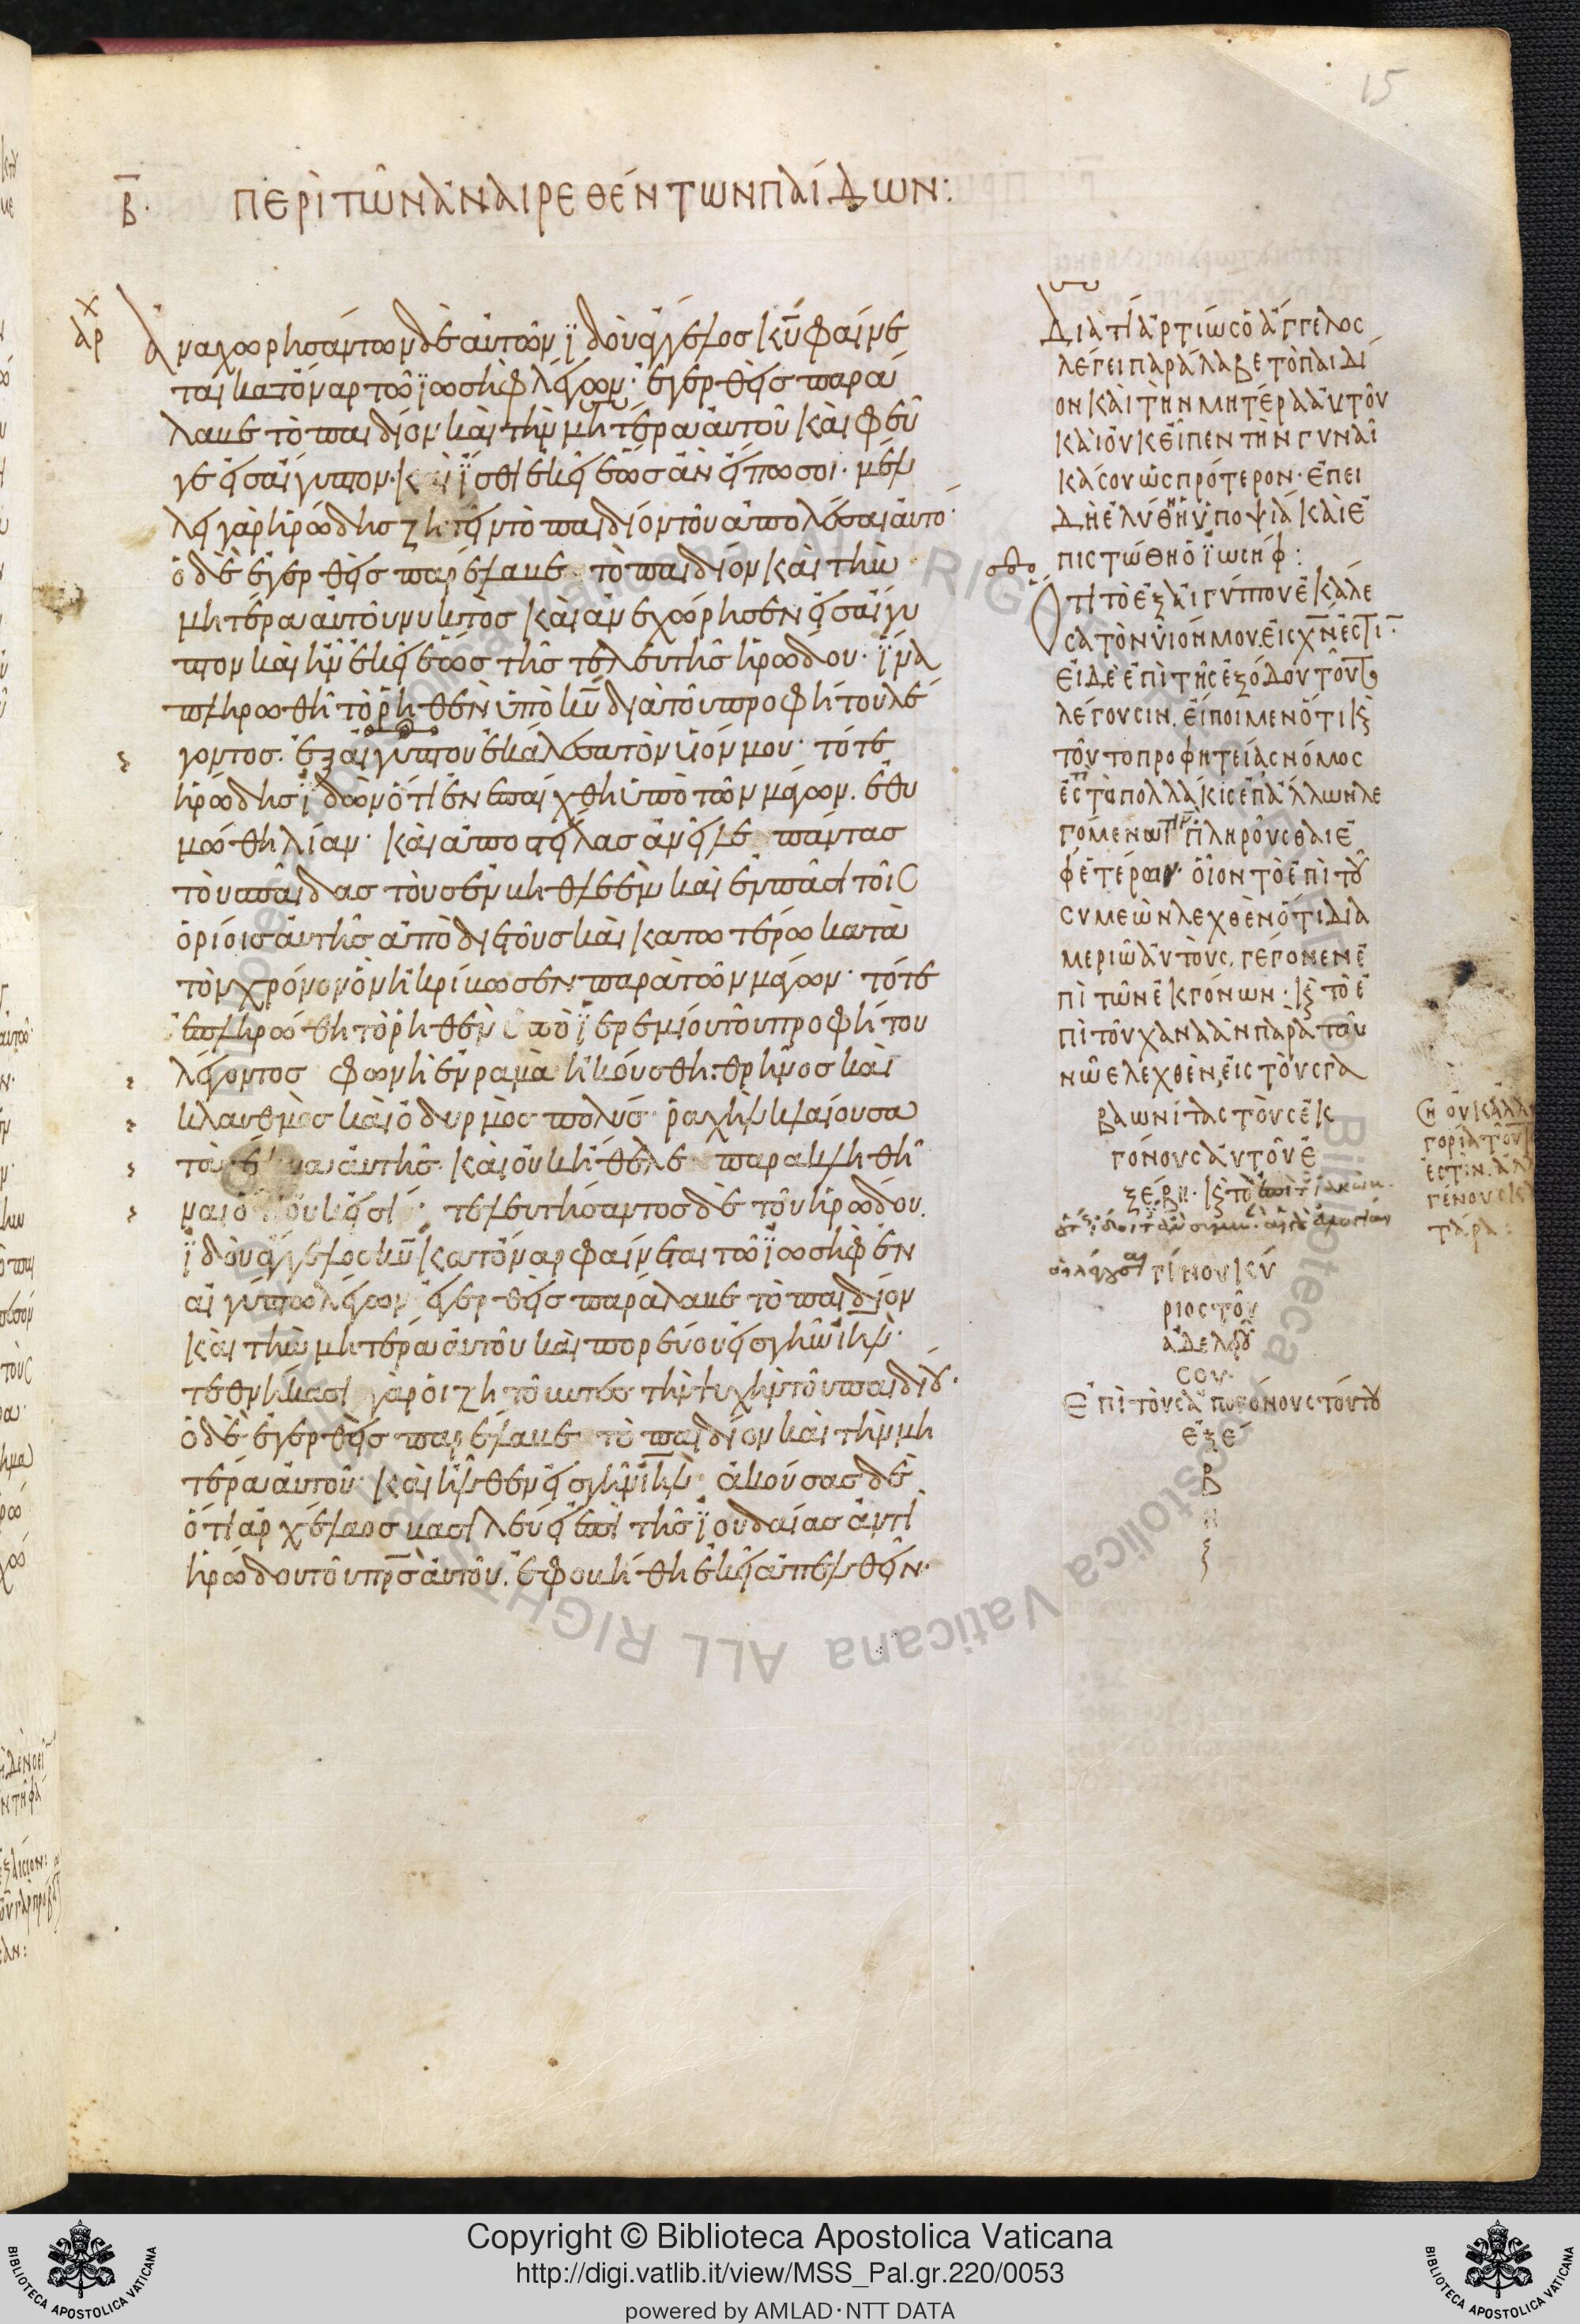 15
β̅· ΠΕΡΙ ΤΩΝ ΑΝΑΙΡΕΘΕΝΤΩΝ ΠΑΙΔΩΝ:
αρχ
Ἀναχωρησάντων δὲ αὐτῶν ἰδοὺ ἄγγελος κ̅υ̅ φαίνε
ται κατόναρ τῶ ϊωσὴφ λέγων· ἐγερθεὶς παρά
λαβε τὸ παιδίον καὶ τὴν μητέρα αὐτοῦ καὶ φεῦ
γε εἰς αἴγυπτον· καὶ ἴσθι ἐκεῖ ἕως ἂν εἴπω σοι· μέλ
λει γὰρ ἡρώδης ζητεῖν τὸ παιδίον τοῦ ἀπολέσαι αὐτό·
ὁ δὲ ἐγερθεὶς παρέλαβε τὸ παιδίον καὶ τὴν
μητέρα αὐτοῦ νυκτὸς καὶ ἀνεχώρησεν εἰς αἴγυ
πτον καὶ ἦν ἐκεῖ ἕως τῆς τελευτῆς ἡρώδου· ἵνα
πληρωθῆ τὸ ῥηθὲν ὑπὸ κ̅υ̅ διὰ τοῦ προφήτου λέ
γοντος· ἐξ αἰγύπτου ἐκάλεσα τὸν υἱόν μου· τότε
ἡρώδης ἰδὼν ὅτι ἐνεπαίχθη ὑπὸ τῶν μάγων. ἐθυ
μώθη λίαν· καὶ ἀποστείλας ἀνεῖλε πάντας
τοὺς παῖδας τοὺς ἐν βηθλεὲμ καὶ ἐν πᾶσι τοῖς
ὁρίοις αὐτῆς ἀπὸ διετοῦς καὶ κατωτέρω κατὰ
τὸν χρόνον ὃν ἠκρίβωσεν παρὰ τῶν μάγων· τότε
ἐπληρώθη τὸ ῥηθὲν ὑπὸ ϊερεμίου τοῦ προφήτου
λέγοντος φωνὴ ἐν ραμὰ ἠκούσθη: θρῆνος καὶ
κλαυθμὸς καὶ ὀδυρμὸς πολύς· ῥαχὴλ κλαίουσα
τὰ τέκνα αὐτῆς· καὶ οὐκ ἤθελε παρακληθῆ
ναι ὅτι οὐκ εἰσί· τελευτήσαντος δὲ τοῦ ἡρώδου.
ϊδοὺ ἄγγελος κ̅υ̅ κατόναρ φαίνεται τῶ ϊωσὴφ ἐν
αἰγύπτω λέγων ἐγερθεὶς παράλαβε τὸ παιδίον
καὶ τὴν μητέρα αὐτοῦ καὶ πορεύου εἰς γῆν ι̅η̅λ̅·
τεθνήκασι γὰρ οἱ ζητοῦντες τὴν ψυχὴν τοῦ παιδίου·
ὁ δὲ ἐγερθεὶς παρέλαβε τὸ παιδίον καὶ τὴν μη
τέρα αὐτοῦ· καὶ ἦλθεν εἰς γῆν ι̅η̅λ̅· ἀκούσας δὲ
ὅτι ἀρχέλαος βασιλεύει ἐπὶ τῆς ϊουδαίας ἀντὶ
ἡρώδου τοῦ π̅ρ̅ς̅ αὐτοῦ. ἐφοβήθη ἐκεῖ ἀπελθεῖν·
ΔΙΑΤΙ ΑΡΤΙΩΣ Ο ΑΓΓΕΛΟΣ
ΛΕΓΕΙ ΠΑΡΑΛΑΒΕ ΤΟ ΠΑΙΔΙ
ΟΝ ΚΑΙ ΤΗΝ ΜΗΤΕΡΑ ΑΥΤΟΥ
ΚΑΙ ΟΥΚ ΕΙΠΕΝ ΤΗΝ ΓΥΝΑΙ
ΚΑ ΣΟΥ ΩΣ ΠΡΟΤΕΡΟΝ· ΕΠΕΙ
ΔΗ ΕΛΥΘΗ Η ΥΠΟΨΙΑ ΚΑΙ Ε
ΠΙΣΤΩΘΗ Ο ΪΩΣΗΦ:
ΟΤΙ ΤΟ ΕΞ ΑΙΓΥΠΤΟΥ ΕΚΑΛΕ
ΣΑ ΤΟΝ ΥΙΟΝ ΜΟΥ. ΕΙΣ Χ̅Ν̅ ΕΣΤΙ·
ΕΙ ΔΕ ΕΠΙ ΤΗΣ ΕΞΟΔΟΥ ΤΟΥΤΟ
ΛΕΓΟΥΣΙΝ. ΕΙΠΟΙΜΕΝ ΟΤΙ Κ(ΑΙ)
ΤΟΥΤΟ ΠΡΟΦΗΤΕΙΑΣ ΝΟΜΟΣ
ΕΣΤΙ ΤΑ ΠΟΛΛΑΚΙΣ ΕΠ ΑΛΛΩΝ ΛΕ
ΓΟΜΕΝΑ ΠΛΗΡΟΥΣΘΑΙ Ε
Φ ΕΤΕΡΩΝ· ΟΙΟΝ ΤΟ ΕΠΙ ΤΟΥ
ΣΥΜΕΩΝ ΛΕΧΘΕΝ ΟΤΙ ΔΙΑ
ΜΕΡΙΩ ΑΥΤΟΥΣ. ΓΕΓΟΝΕΝ Ε
ΠΙ ΤΩΝ ΕΚΓΟΝΩΝ· Κ(ΑΙ) ΤΟ Ε
ΠΙ ΤΟΥ ΧΑΝΑΑΝ ΠΑΡΑ ΤΟΥ
ΝΩΕ ΛΕΧΘΕΝ, ΕΙΣ ΤΟΥΣ ΓΑ
ΒΑΩΝΙΤΑΣ ΤΟΥΣ ΕΚ
ΓΟΝΟΥΣ ΑΥΤΟΥ Ε
ΞΕΒΗ·
ΓΙΝΟΥ ΚΥ
ΡΙΟΣ ΤΟΥ
ΑΔΕΛΦΟΥ
ΣΟΥ·
ΕΠΙ ΤΟΥΣ ΑΠΟΓΟΝΟΥΣ ΤΟΥΤΟΥ
ΕΞΕ
Β
Η
Copyright © Biblioteca Apostolica Vaticana
http://digi.vatlib.it/view/MSS_Pal.gr.220/0053
powered by AMLAD·NTT DATA
BIBLIOTECA APOSTOLICA VATICANA
BIBLIOTECA APOSTOLICA VATICANA